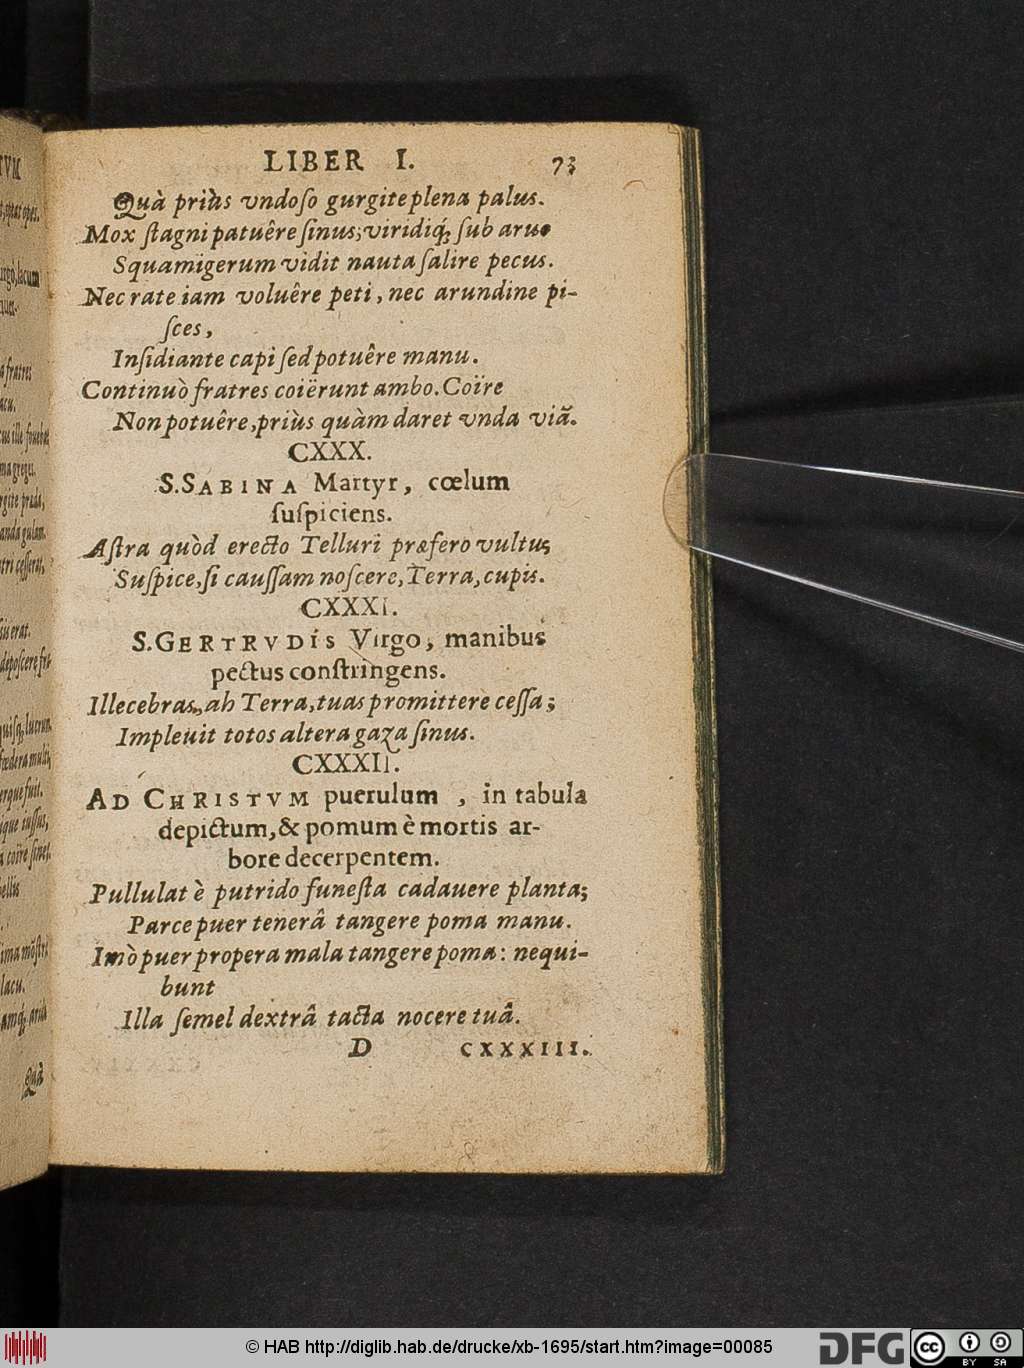 LIBER I. 73
Quà priùs vndoſo gurgite plena palus.
Mox ſtagni patuêre ſinus, viridiq́; ſub aruo
Squamigerum vidit nauta ſalire pecus.
Nec rate iam voluêre peti, nec arundine pi-
ſces,
Inſidiante capi ſed potuêre manu.
Continuò fratres coiërunt ambo. Coïre
Non potuêre, priùs quàm daret vnda viã.
CXXX.
S. SABINA Martyr, cœlum
ſuſpiciens.
Aſtra quòd erecto Telluri præfero vultu,
Suſpice, ſi cauſſam noſcere, Terra, cupis.
CXXXI.
S. GERTRVDIS Virgo, manibus
pectus conſtringens.
Illecebras, ah Terra, tuas promittere ceſſa;
Impleuit totos altera gaza ſinus.
CXXXII.
AD CHRISTVM puerulum, in tabula
depictum, & pomum è mortis ar-
bore decerpentem.
Pullulat è putrido funeſta cadauere planta;
Parce puer tenerâ tangere poma manu.
Imò puer propera mala tangere poma: nequi-
bunt
Illa ſemel dextrâ tacta nocere tuâ.
D CXXXIII.
© HAB http://diglib.hab.de/drucke/xb-1695/start.htm?image=00085
DFG
cc BY SA